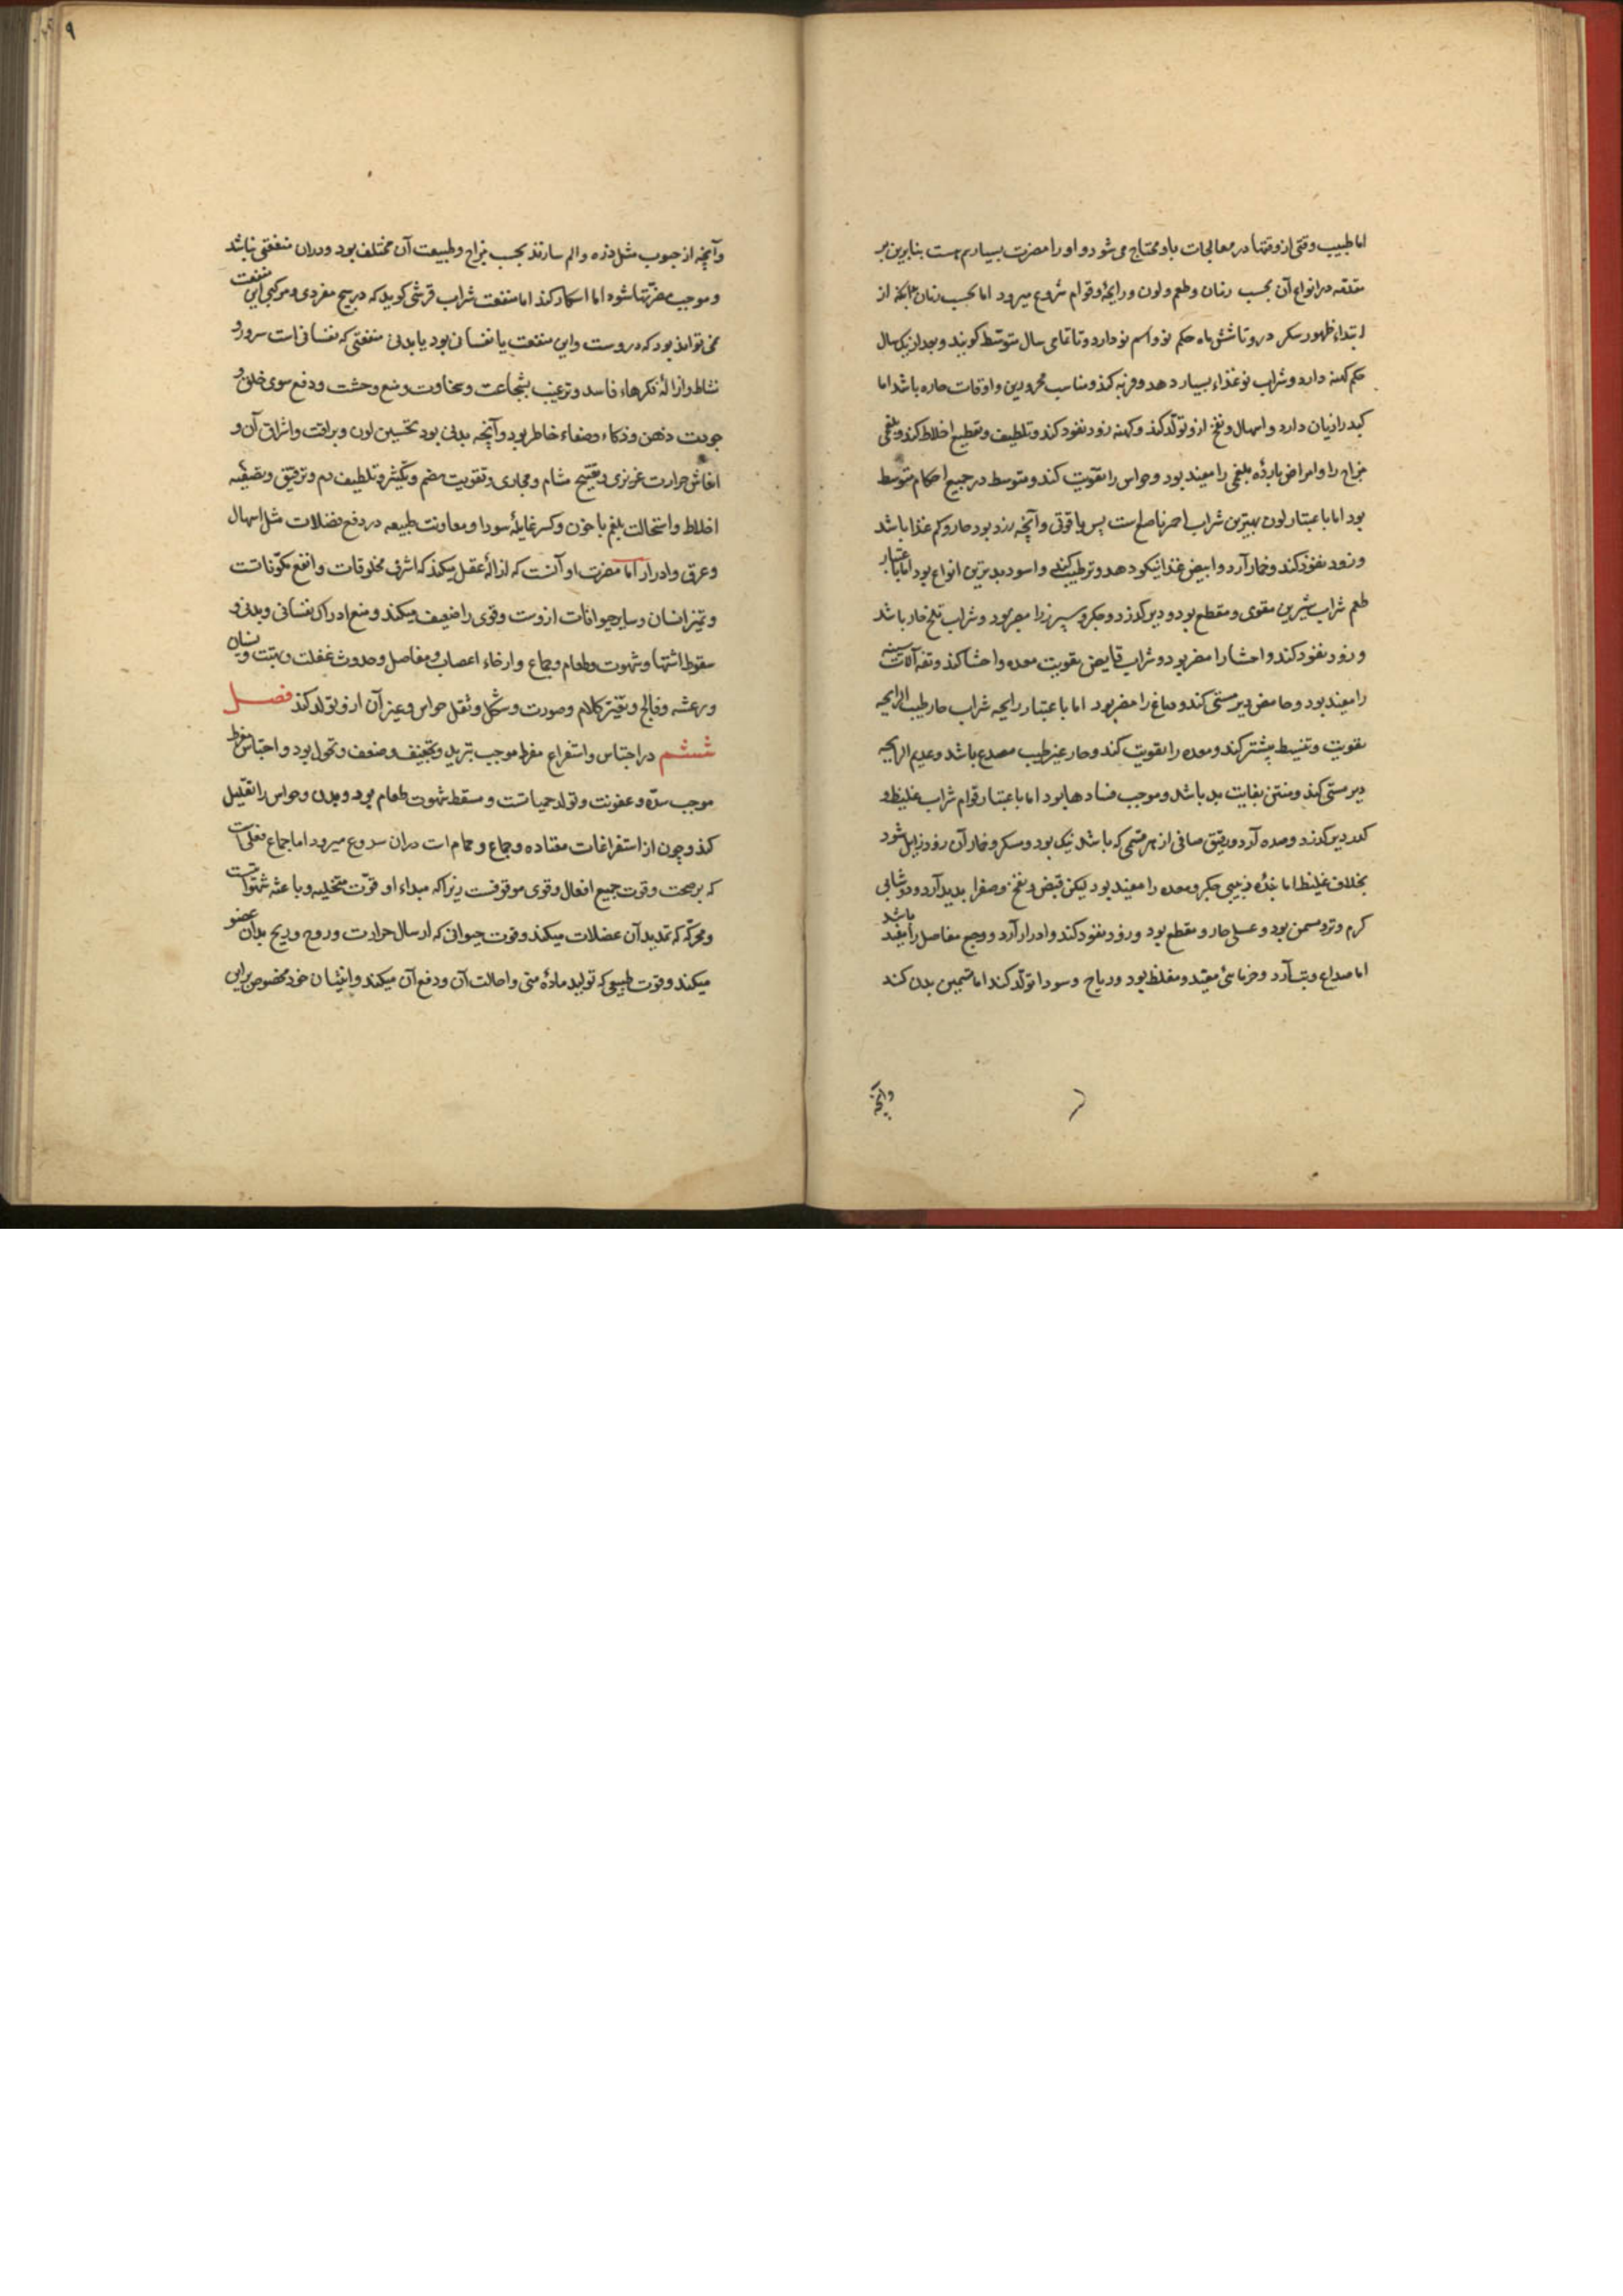 اما طبیب وقتی از وقتها در معالجات باو محتاج می شود و او را مضرت بسیار هم هست بنابرین بر
مقدمه در انواع آن بحسب زمان و طعم و لون و رایحه و قوام شروع میرود اما بحسب زمان آنکه از
ابتداء ظهور سکر درو تا شش ماه حکم نو و اسم نو دارد و تا تمامی سال متوسط کویند و بعد از یک سال
حکم کهنه دارد و شراب نو غذاء بسیار دهد و فربه کند و مناسب محرورین و اوقات حاره باشد اما
کبد را زیان دارد و اسهال و نفخ ازو تولد کند و کهنه زود نفوذ کند و تلطیف و تقطیع اخلاط کند و بلغمی
مزاج را و امراض بارده بلغمی را مفید بود و حواس را تقویت کند و متوسط در جمیع احکام متوسط
بود اما باعتبار لون بهترین شراب احمر ناصع است پس یاقوتی و آنچه زرد بود حار و کم غذا باشد
و زود نفوذ کند و خمار آرد و ابیض غذا نیکو دهد و ترطیب کند و اسود بدترین انواع بود اما باعتبار
طعم شراب شیرین مقوی و مقطع بود و دیر کذرد و جکر و سپرز را مضر بود و شراب تلخ حار باشد
و زود نفوذ کند و احشا را مضر بود و شراب قابض تقویت معده و احشا کند و تفه آلات سینه
را مفید بود و حامض دیر مستی کند و دماغ را مضر بود اما باعتبار رایحه شراب حار طیب الرایحه
تقویت و تنشیط بیشتر کند و معده را تقویت کند و حار غیر طیب مصدع باشد و عدیم الرایحه
دیر مستی کند و منتن بغایت بد باشد و موجب فسادها بود اما باعتبار قوام شراب غلیظ و
کدر دیر کذرد و سده آرد و رقیق صافی از هر قسمی که باشد نیک بود و سکر و خمار آن زود زایل شود
بخلاف غلیظ اما نبیذ زبیبی جکر و معده را مفید بود لیکن قبض و نفخ و صفرا بدید آرد و دوشابی
کرم و تر و مسمن بود و عسلی حار و مقطع بود و زود نفوذ کند و ادرار آرد و وجع مفاصل را مفید باشد
اما صداع و تب آرد و خرمائی مغلظ بود و ریاح و سودا تولد کند اما تسمین بدن کند
وآنچه
۹
وآنچه از حبوب مثل ذره و الم سازند بحسب مزاج و طبیعت آن مختلف بود و دران منفعتی نباشد
و موجب مضرتها شود اما اسکار کند اما منفعت شراب قرشی کوید که در هیچ مفردی و مرکبی این منفعت
نمی تواند بود که دروست و این منفعت یا نفسانی بود یا بدنی منفعتی که نفسانی است سرور و
نشاط و ازالهٔ فکرهاء فاسد و ترغیب بشجاعت و سخاوت و منع وحشت و دفع سوی خلق و
جودت ذهن و ذکاء و صفاء خاطر بود و آنچه بدنی بود تحسین لون و براقت و اشراق آن و
انعاش حرارت غریزی و تفتیح مسام و مجاری و تقویت هضم و تکثیر و تلطیف دم و ترقیق و تصفیه
اخلاط و استحالت بلغم با خون و کسر غایلهٔ سودا و معاونت طبیعه در دفع فضلات مثل اسهال
و عرق و ادرار اما مضرت او آنست که ازالهٔ عقل میکند که اشرف مخلوقات و انفع مکونات است
و تمیز انسان و سایر حیوانات ازوست و قوی را ضعیف میکند و منع ادراک نفسانی و بدنی و
سقوط اشتها و شهوت و طعام و جماع و ارخاء اعصاب و مفاصل و حدوث غفلت و بهتت و نسیان
و رعشه و فالج و تغیر کلام و صورت و شکل و ثقل حواس و غیر آن ازو تولد کند فصل
ششم در احتباس و استفراغ مفرط موجب تبرید و تجفیف و ضعف و نحول بود و احتباس مفرط
موجب سده و عفونت و تولد حمیاتست و مسقط شهوت طعام بود و بدن و حواس را ثقیل
کند و چون از استفراغات معتاده و جماع و حمام است دران شروع میرود اما جماع فعلی است
که بر صحت و قوت جمیع افعال و قوی موقوفست زیرا که مبداء او قوت متخیله و باعثه شهوتست
و محرکه که تمدید آن عضلات میکند و قوت حیوانی که ارسال حرارت و روح و ریح بدان عضو
میکند و قوت طبیعی که تولید مادهٔ منی و احالت آن و دفع آن میکند و انثیان خود مخصوص برای